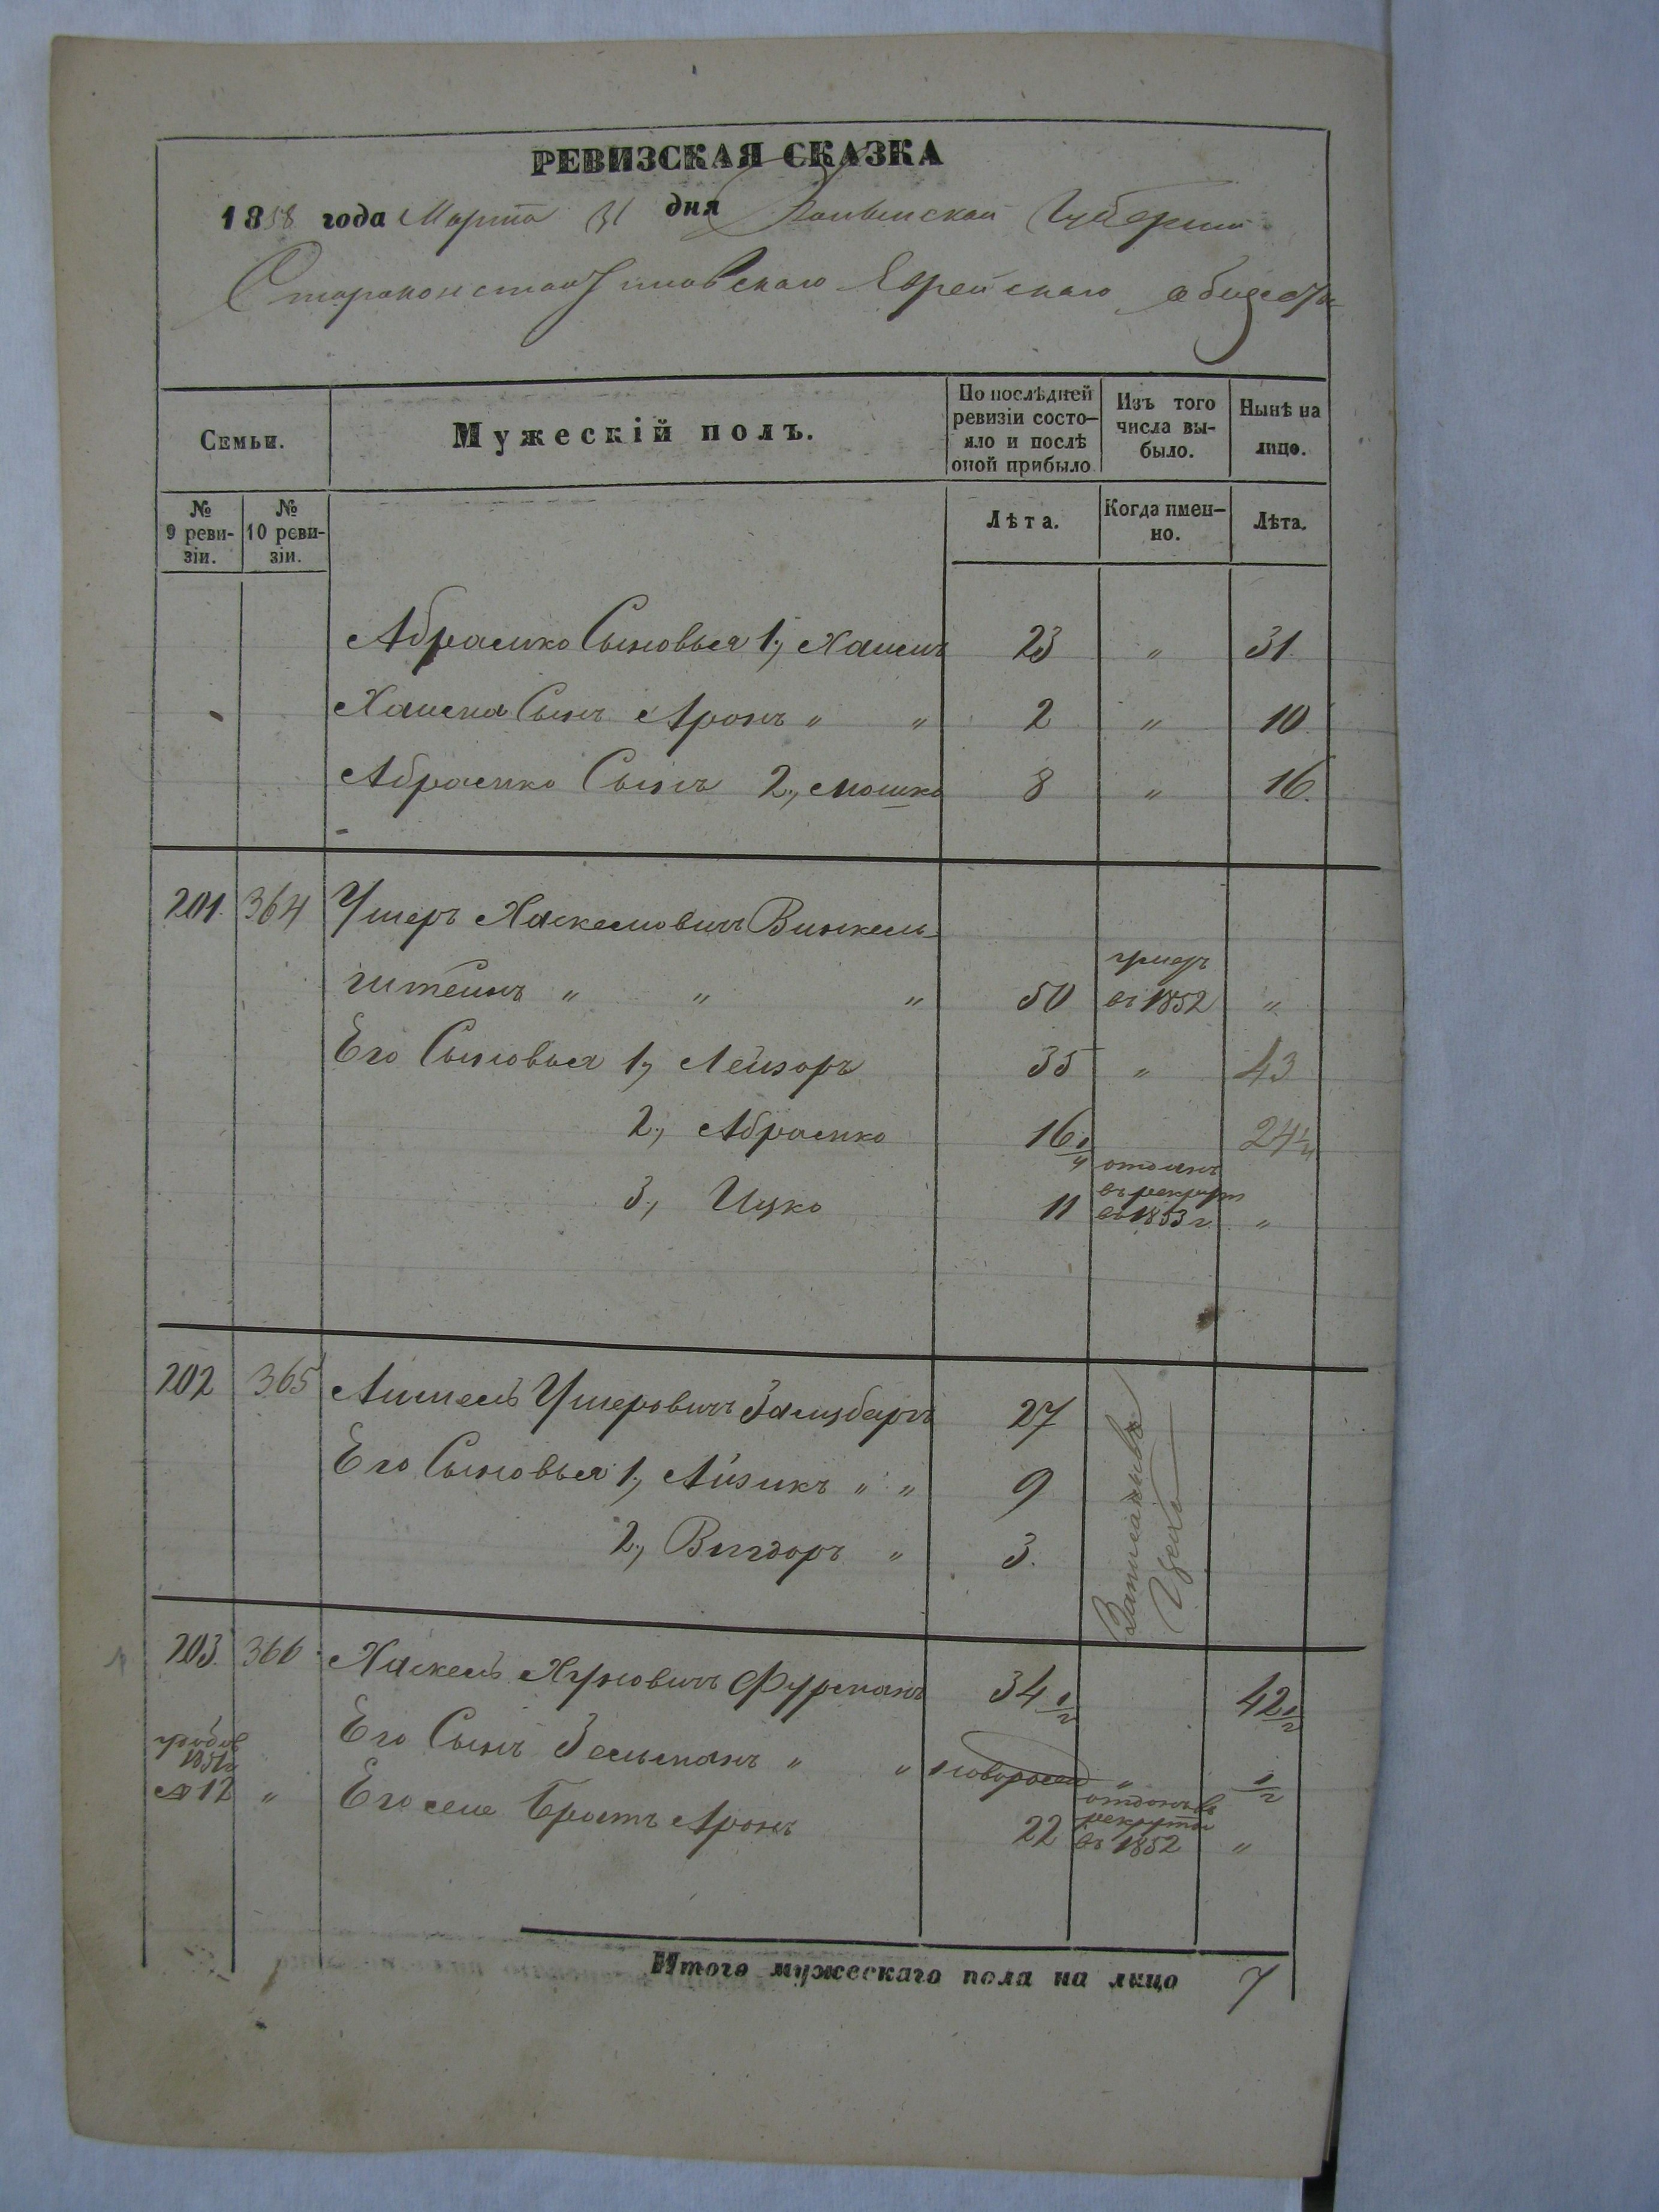 РЕВИЗСКАЯ СКАЗКА
1858 года Марта 31 дня Волынской Губернии
Староконстантиновскаго Еврейскаго общества
Семьи.
Мужескій полъ.
По послѣдней ревизіи состо-
яло и послѣ
оной прибыло
Изъ того
числа вы-
было.
Нынѣ на
лицо.
№ 9 реви-
зіи.
№ 10 реви-
зіи.
Лѣта.
Когда имен-
но.
Лѣта.
Абрамко Сыновья 1, Хаимъ 23 " 31
Хаима Сынъ Аронъ " " 2 " 10
Абрамко Сынъ 2, Мошко 8 " 16.
201. 364 Ушеръ Хаскелювичъ Винкель-
штейнъ " " " 50 умеръ въ 1852 "
Его Сыновья 1, Лейзоръ 35 " 43
2, Абрамко 16 1/4 24 1/4
3, Ицко 11 отданъ въ рекруты въ 1853 г. "
202 365 Аншель Ушеровичъ Залцбергъ 27
Его Сыновья 1, Айзикъ " " 9
2, Вигдоръ " 3.
203. 366 Хаскель Хуновичъ Фурманъ 34 1/2 42 1/2
Его Сынъ Зельманъ " " новорожд " 1/2
1851
№ 12 " Его же Братъ Аронъ 22 отданъ въ рекруты въ 1852 "
Итого мужескаго пола на лицо 7